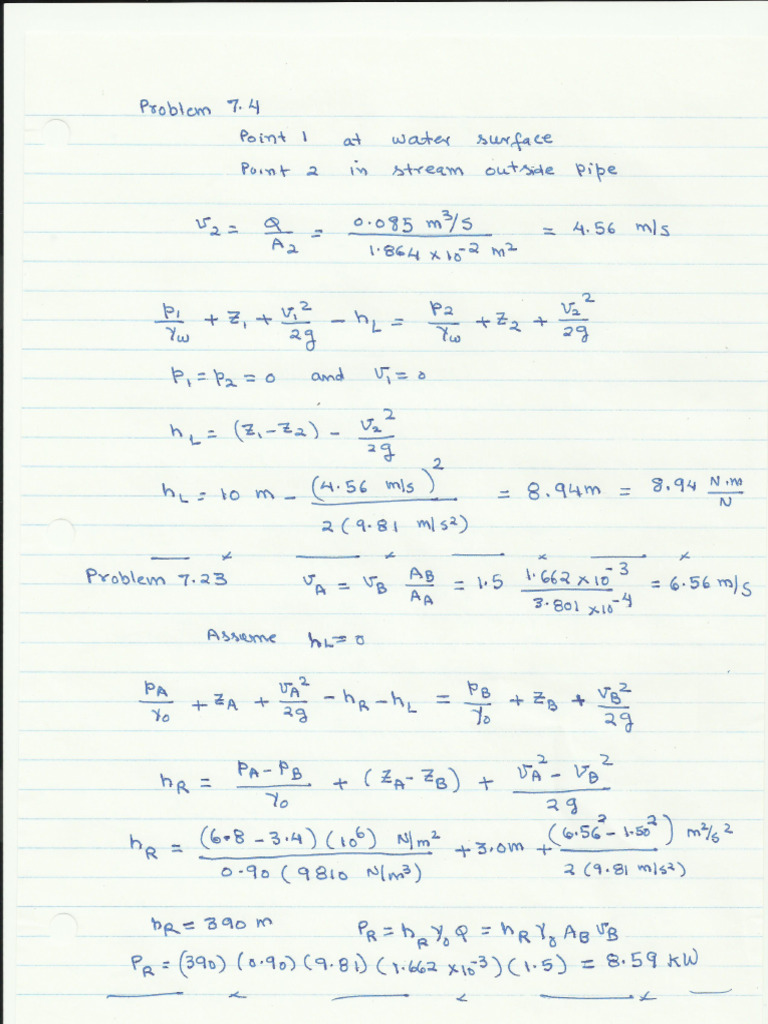 Problem 7.4
Point 1 at water surface
Point 2 in stream outside pipe
v₂ = Q/A₂ = 0.085 m³/s / 1.864 × 10⁻² m² = 4.56 m/s
p₁/γw + z₁ + v₁²/2g − hL = p₂/γw + z₂ + v₂²/2g
p₁ = p₂ = 0 and v₁ = 0
hL = (z₁ − z₂) − v₂²/2g
hL = 10 m − (4.56 m/s)² / 2(9.81 m/s²) = 8.94 m = 8.94 N·m/N
Problem 7.23 vA = vB AB/AA = 1.5 1.662 × 10⁻³ / 3.801 × 10⁻⁴ = 6.56 m/s
Assume hL = 0
pA/γ₀ + zA + vA²/2g − hR − hL = pB/γ₀ + zB + vB²/2g
hR = pA − pB / γ₀ + (zA − zB) + vA² − vB² / 2g
hR = (6.8 − 3.4)(10⁶) N/m² / 0.90 (9810 N/m³) + 3.0 m + (6.56² − 1.50²) m²/s² / 2(9.81 m/s²)
hR = 390 m PR = hR γ₀ Q = hR γ₀ AB vB
PR = (390)(0.90)(9.81)(1.662 × 10⁻³)(1.5) = 8.59 kW